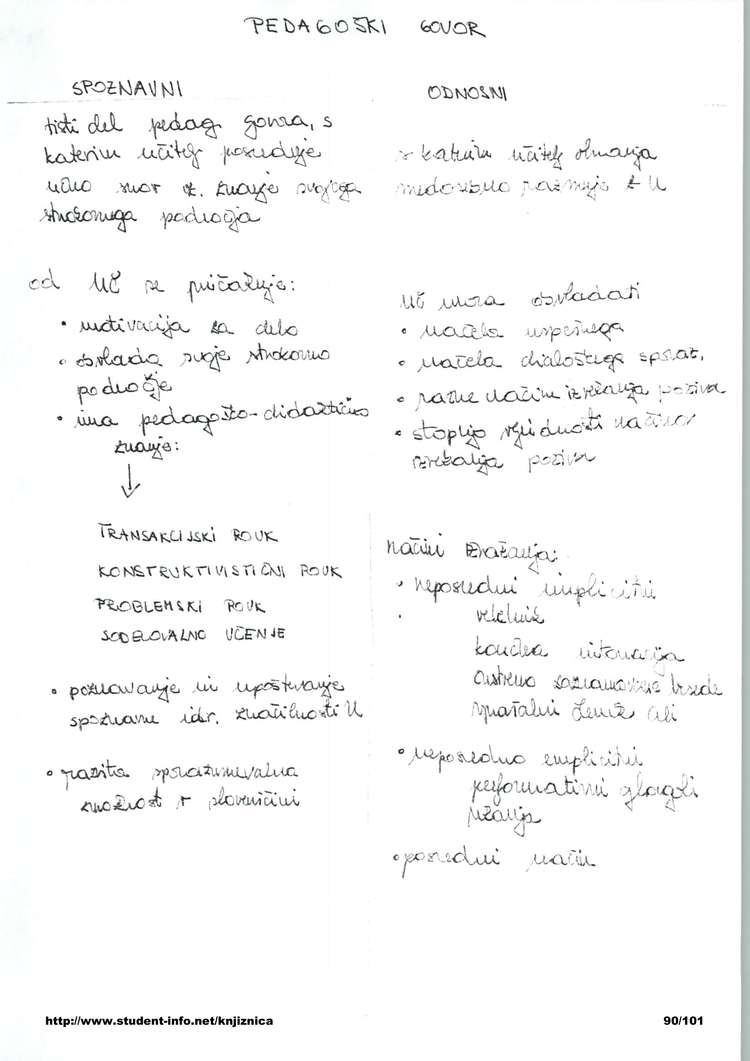 PEDAGOŠKI GOVOR
SPOZNAVNI
tisti del pedag. govora, s
katerim učitelj posreduje
učno snov oz. znanje svojega
strokovnega področja
od UČ se pričakuje:
• motivacija za delo
• obvlada svoje strokovno
področje
• ima pedagoško-didaktično
znanje:
↓
TRANSAKCIJSKI POUK
KONSTRUKTIVISTIČNI POUK
PROBLEMSKI POUK
SODELOVALNO UČENJE
• poznavanje in upoštevanje
spoznavne idr. značilnosti U
• razvita sporazumevalna
zmožnost v slovenščini
ODNOSNI
s katerim učitelj ohranja
medosebno razmerje z U
UČ mora obvladati
• načela uspešnega
• načela dialoškega sporaz.
• razne načine izrekanja poziva
• stopnjo vljudnosti načinov
izrekanja poziva
načini izražanja:
• neposredni implicitni
velelnik
končna intonacija
čustveno zaznamovane besede
vprašalni členek ali
• neposredno emplicitni
performativni glagoli
• posredni način
http://www.student-info.net/knjiznica
90/101